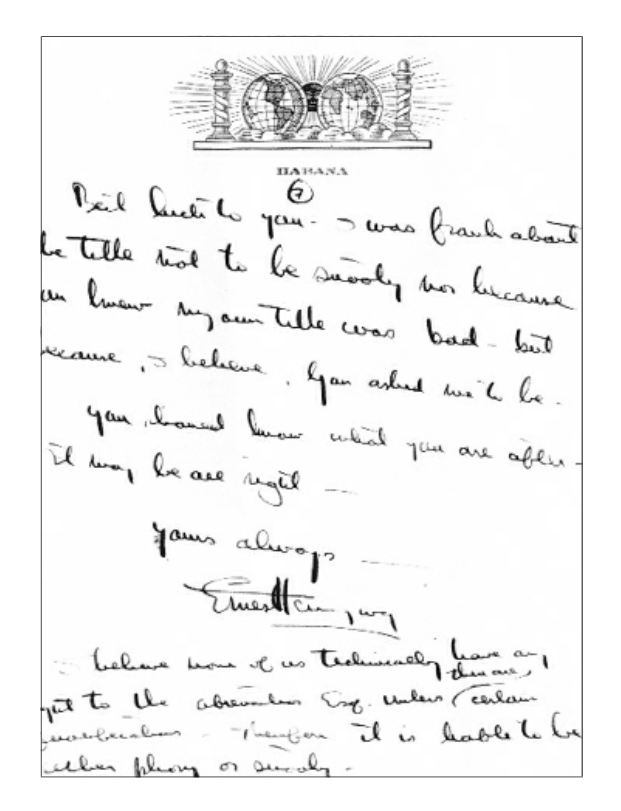 HABANA
6
Best luck to you - I was frank about
he title not to be snooty nor because
knew my own title was bad - but
ecause, I believe, you asked me to be -
you know what you are after -
it may be all right —
Yours always —
Ernest Hemingway
I believe none of us technically have any
there are
ght to the abreviation Esq. unless certain
qualifications - Therefore it is liable to be
either phony or snooty -